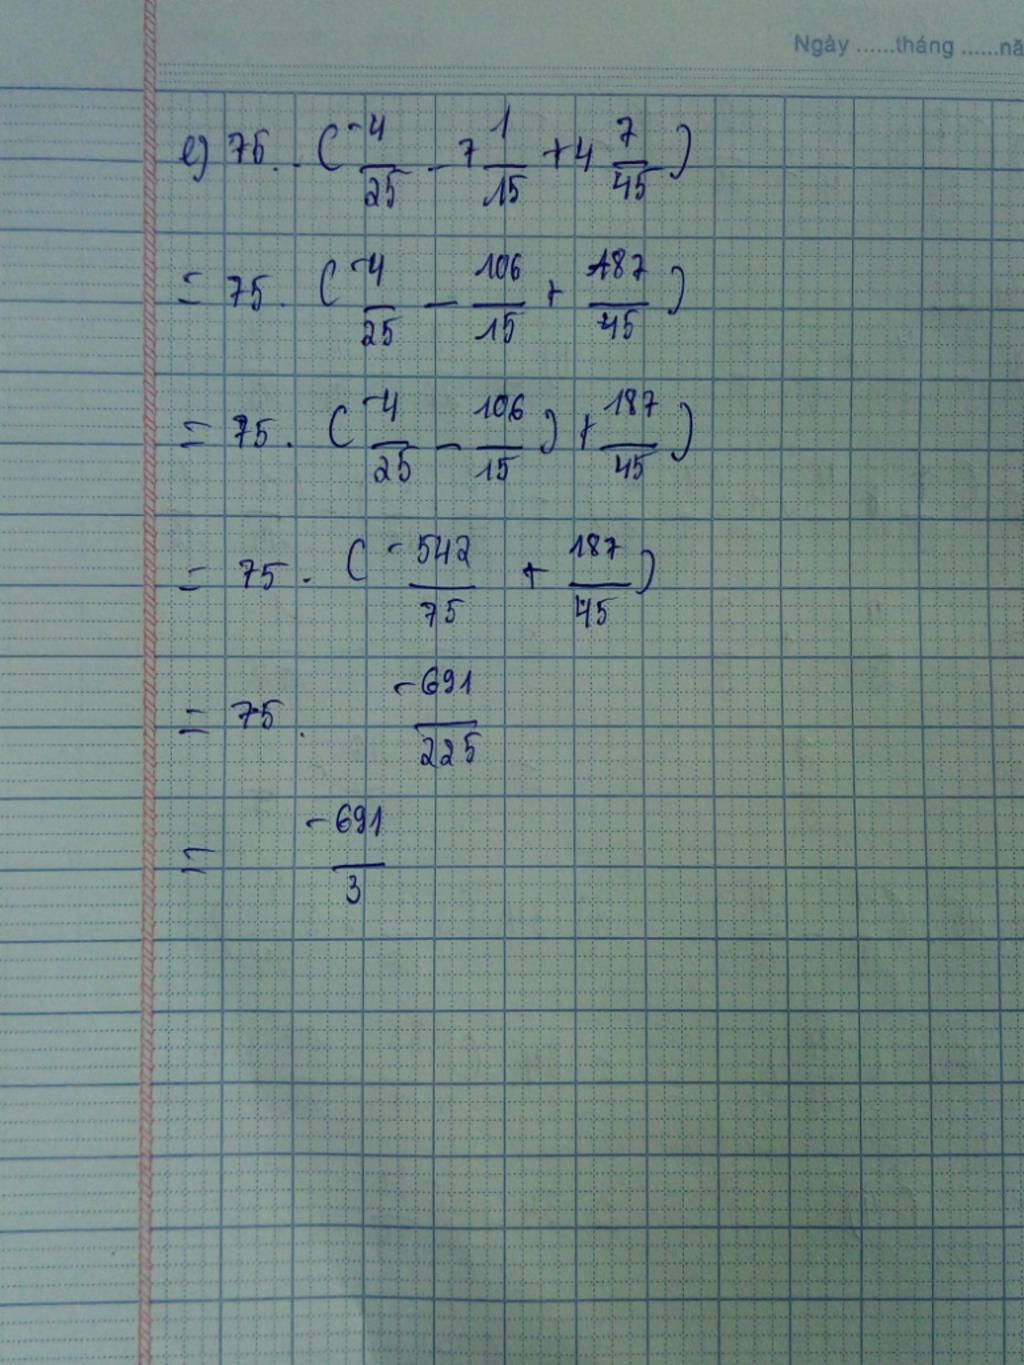 Ngày ......tháng ......nă
e) 75 . ( -4/25 - 7 1/15 + 4 7/45 )
= 75 . ( -4/25 - 106/15 + 187/45 )
= 75 . ( -4/25 - 106/15 ) + 187/45 )
= 75 . ( -542/75 + 187/45 )
= 75 . -691/225
= -691/3